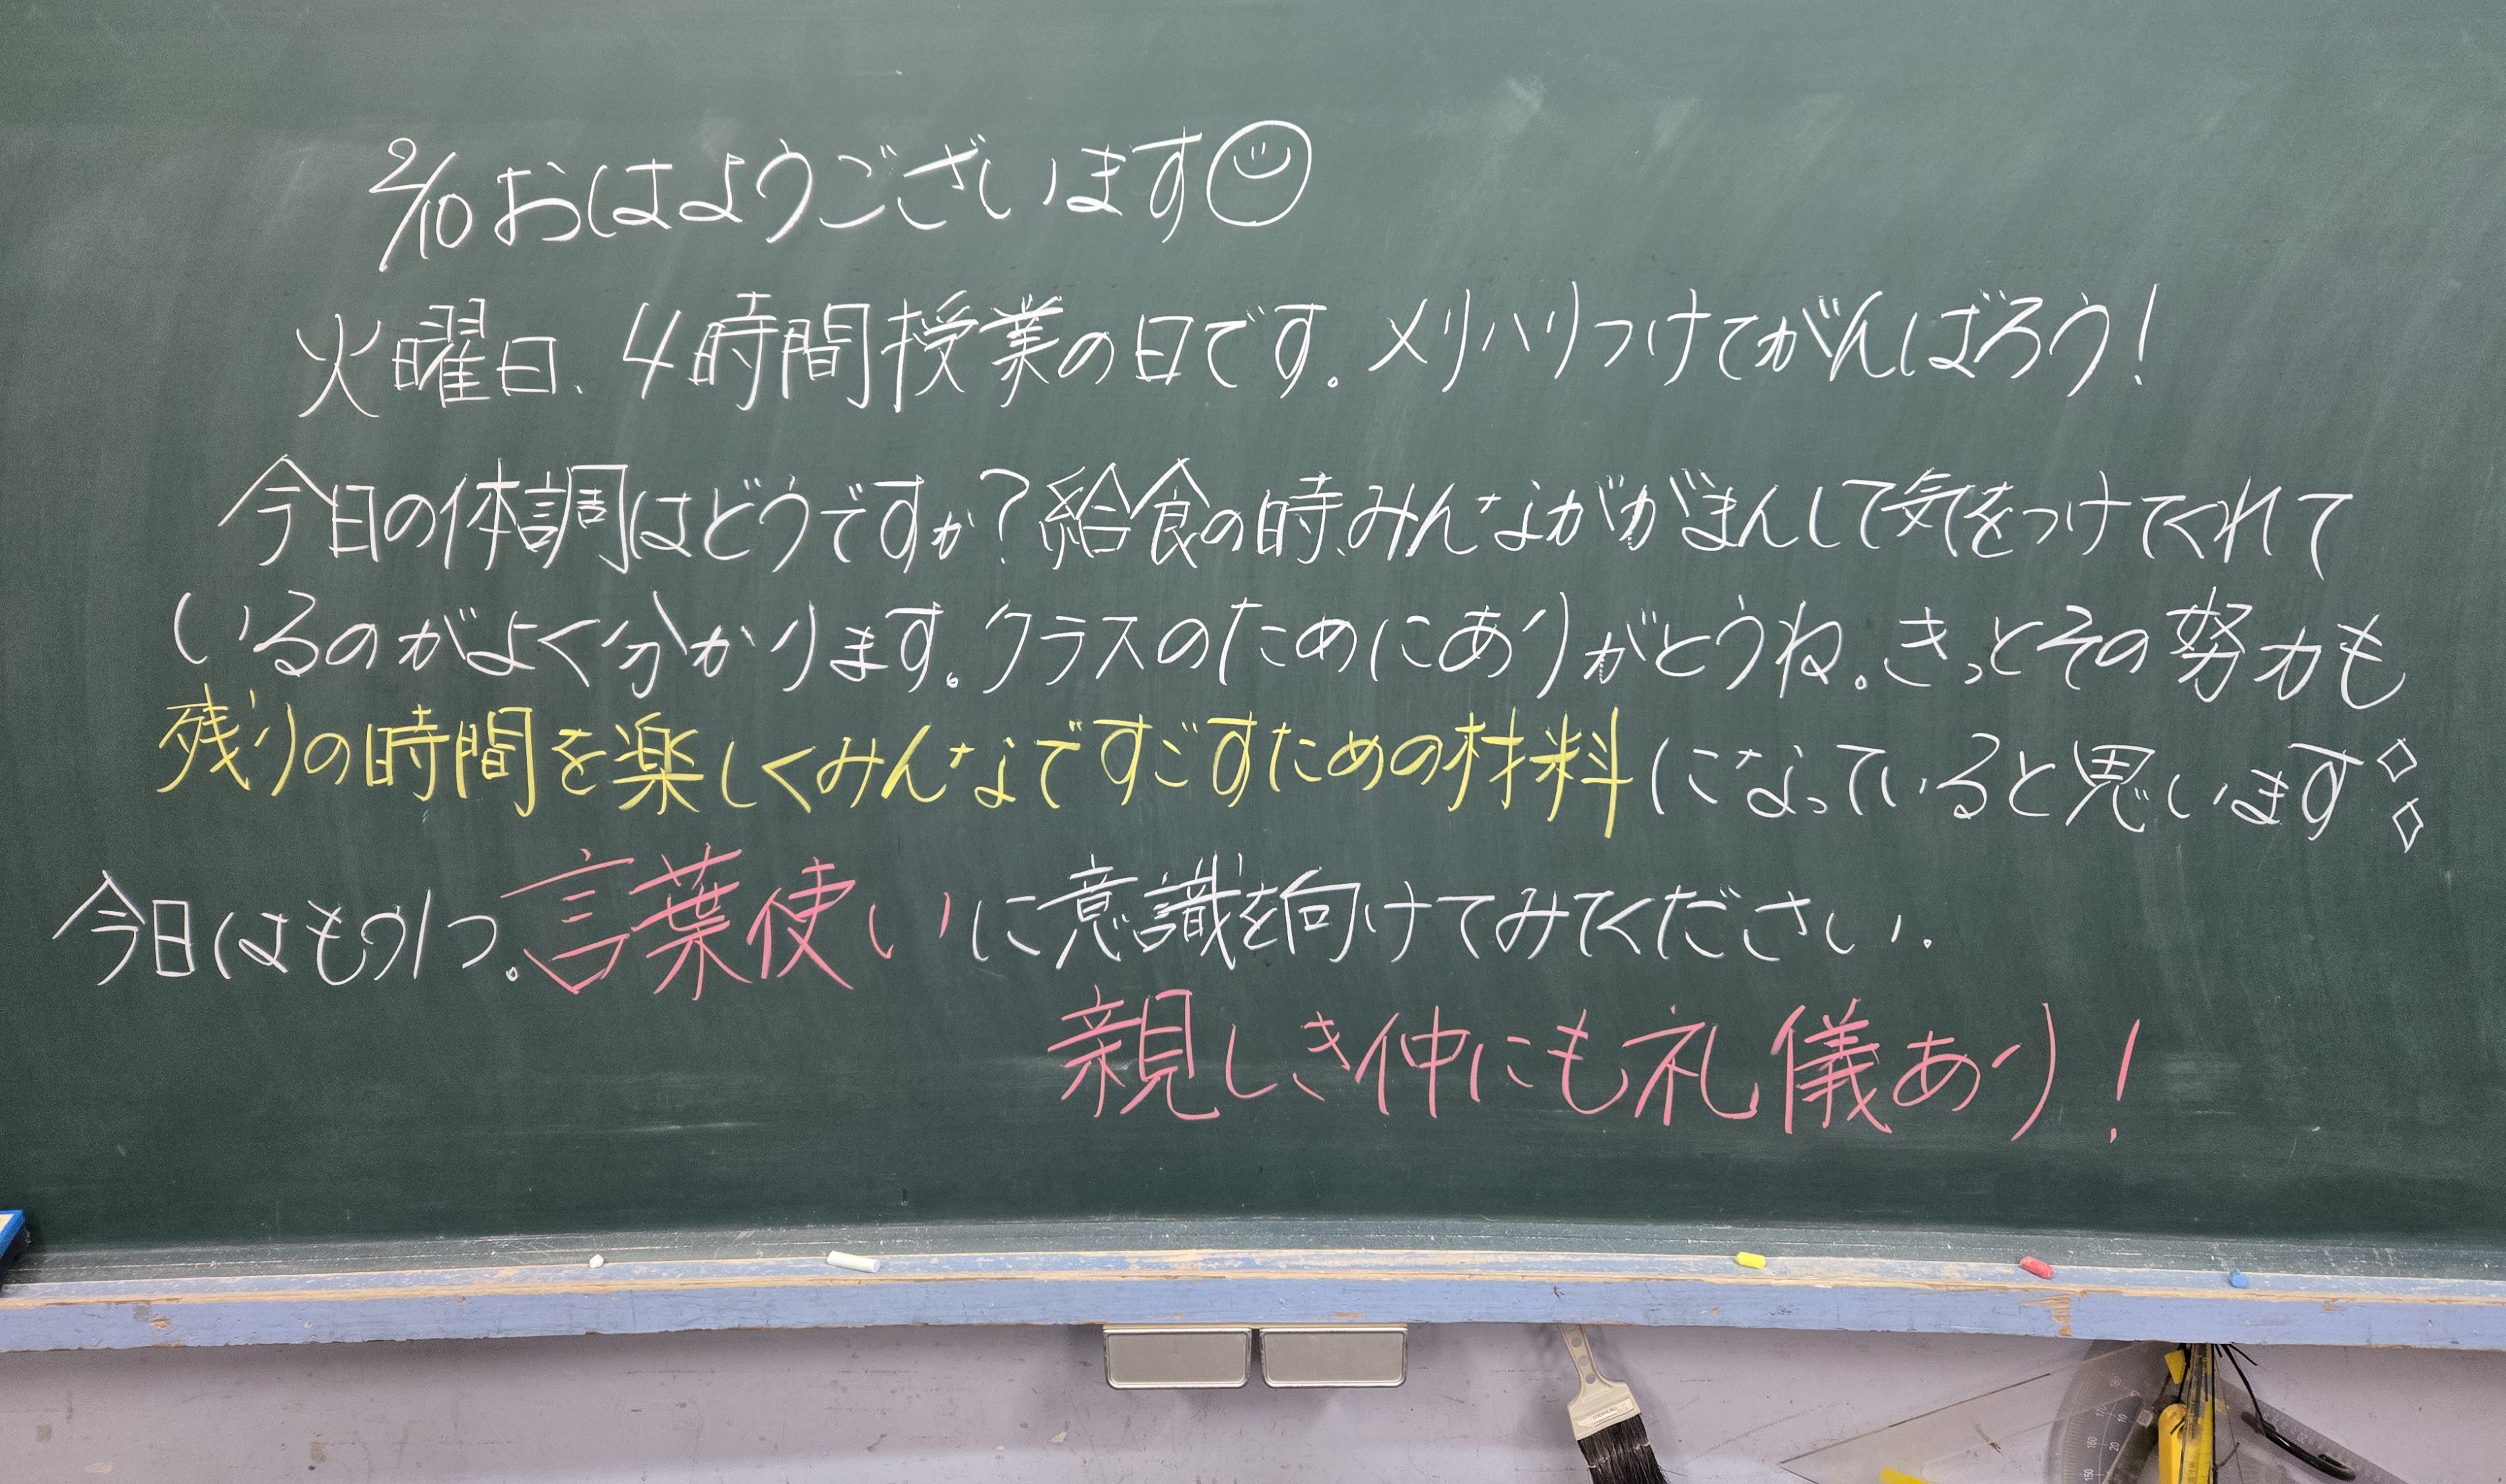 2/10 おはようございます☺
火曜日、4時間授業の日です。メリハリつけてがんばろう!
今日の体調はどうですか?給食の時、みんながががまんして気をつけてくれて
いるのがよく分かります。クラスのためにありがとうね。きっとその努力も
残りの時間を楽しくみんなですごすための材料になっていると思います◇◇
今日はもう1つ。言葉使いに意識を向けてみてください。
親しき仲にも礼儀あり!